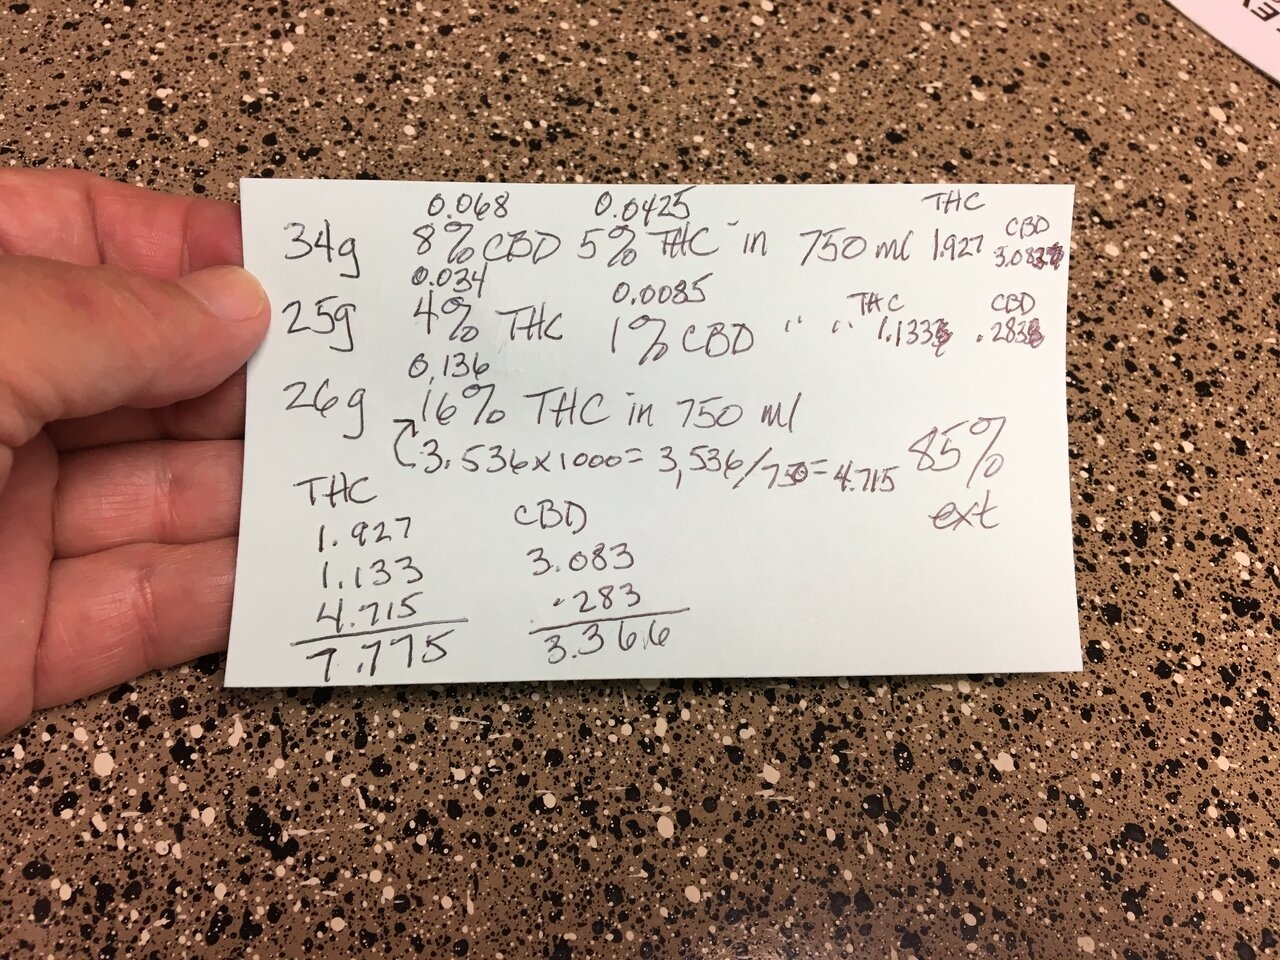 0.068 0.0425 THC
34g 8% CBD 5% THC in 750 ml 1.927 CBD 3.083
0.034 0.0085 THC CBD
25g 4% THC 1% CBD " " 1.133 .283
0.136
26g 16% THC in 750 ml
3.536x1000= 3,536/750= 4.715 85%
ext
THC CBD
1.927 3.083
1.133 .283
4.715 3.366
7.775